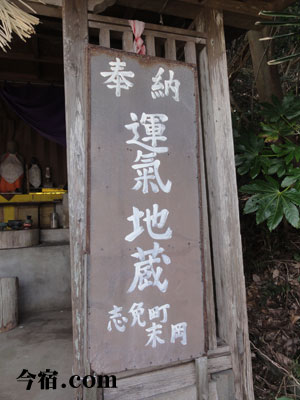 奉納
運氣地蔵
志免町
末岡
今宿.com